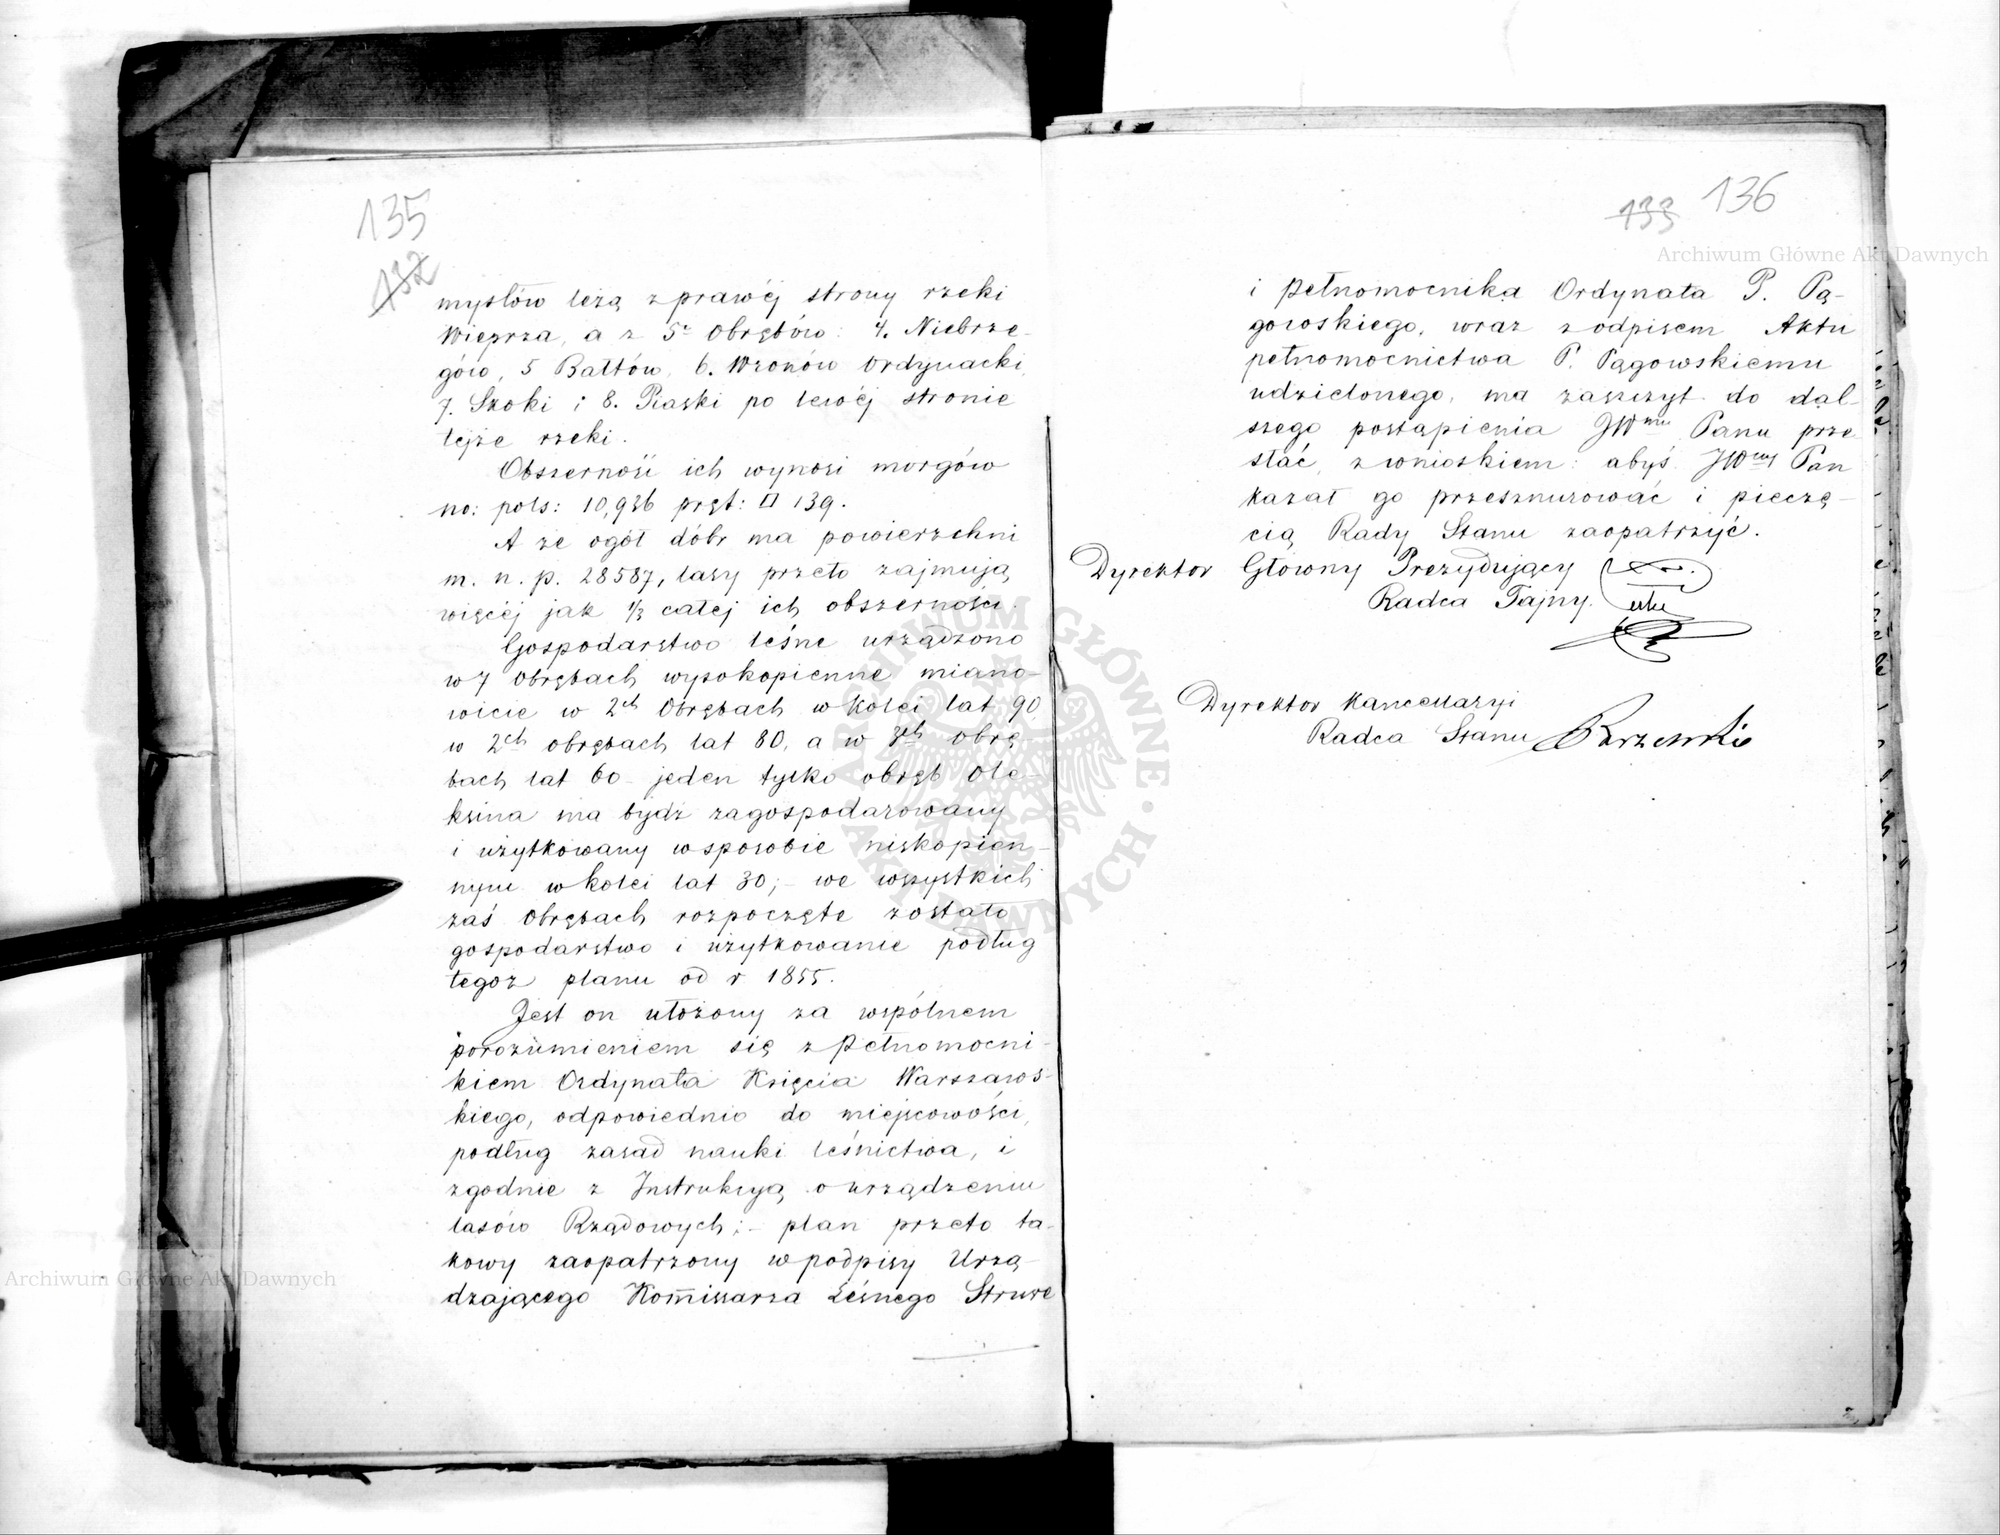 135
132
mysłów leżą z prawéj strony rzeki
Wieprza, a z 5c Obrębów: 4. Niebrze-
gów, 5 Bałtów, 6. Wronów Ordynacki,
7. Skoki i 8. Piaski po lewéj stronie
tejże rzeki.
Obszerność ich wynosi morgów
no: pols: 10,926 pręt: □ 139.
A że ogół dóbr ma powierzchni
m. n. p. 28587, lasy przeto zajmują
więcéj jak 1/3 całej ich obszerności.
Gospodarstwo leśne urządzono
w 7 Obrębach wysokopienne miano-
wicie w 2ch Obrębach w kolei lat 90
w 2ch obrębach lat 80, a w 3ch obrę-
bach lat 60 - jeden tylko obręb Ole-
ksina ma bydź zagospodarowany
i użytkowany w sposobie niskopien-
nym w kolei lat 30; - we wszystkich
zaś Obrębach rozpoczęte zostało
gospodarstwo i użytkowanie podług
tegoż planu od r 1855.
Jest on ułożony za wspólnem
porozumieniem się z Pełnomocni-
kiem Ordynata Księcia Warszaws-
kiego, odpowiednio do miejscowości,
podług zasad nauki leśnictwa, i
zgodnie z Instrukcyą o urządzeniu
lasów Rządowych; - plan przeto ta-
kowy zaopatrzony w podpisy Urzą-
dzającego Komissarza Leśnego Struve
133 136
i Pełnomocnika Ordynata P. Pą-
gowskiego, wraz z odpisem Aktu
pełnomocnictwa P. Pągowskiemu
udzielonego, ma zaszczyt do dal-
szego postąpienia JWmu Panu prze-
słać, z wnioskiem: abyś JWny Pan
kazał go przesznurować i pieczę-
cią Rady Stanu zaopatrzyć.
Dyrektor Główny Prezydujący
Radca Tajny.
Dyrektor Kancellaryi
Radca Stanu
Archiwum Główne Akt Dawnych
Archiwum Główne Akt Dawnych
ARCHIWUM GŁÓWNE AKT DAWNYCH